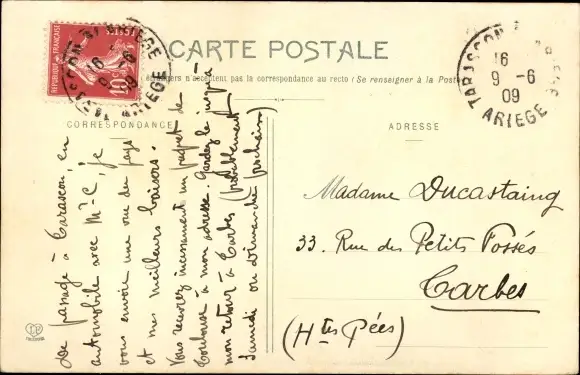 CARTE POSTALE
étrangers n'acceptent pas la correspondance au recto (Se renseigner à la Poste)
CORRESPONDANCE
ADRESSE
REPUBLIQUE FRANÇAISE
10
TARASCON
16
9 -6
09
ARIEGE
De passage à Tarascon, en
automobile avec Mr C, je
vous envoie une vue du pays
et mes meilleurs baisers.
Vous recevrez incessamment un paquet de
Toulouse à mon adresse. Gardez le jusqu'à
mon retour à Tarbes (probablement
Samedi ou Dimanche prochains)
Madame Ducastaing
33. Rue des Petits Fossés
Tarbes
(Htes Pées)